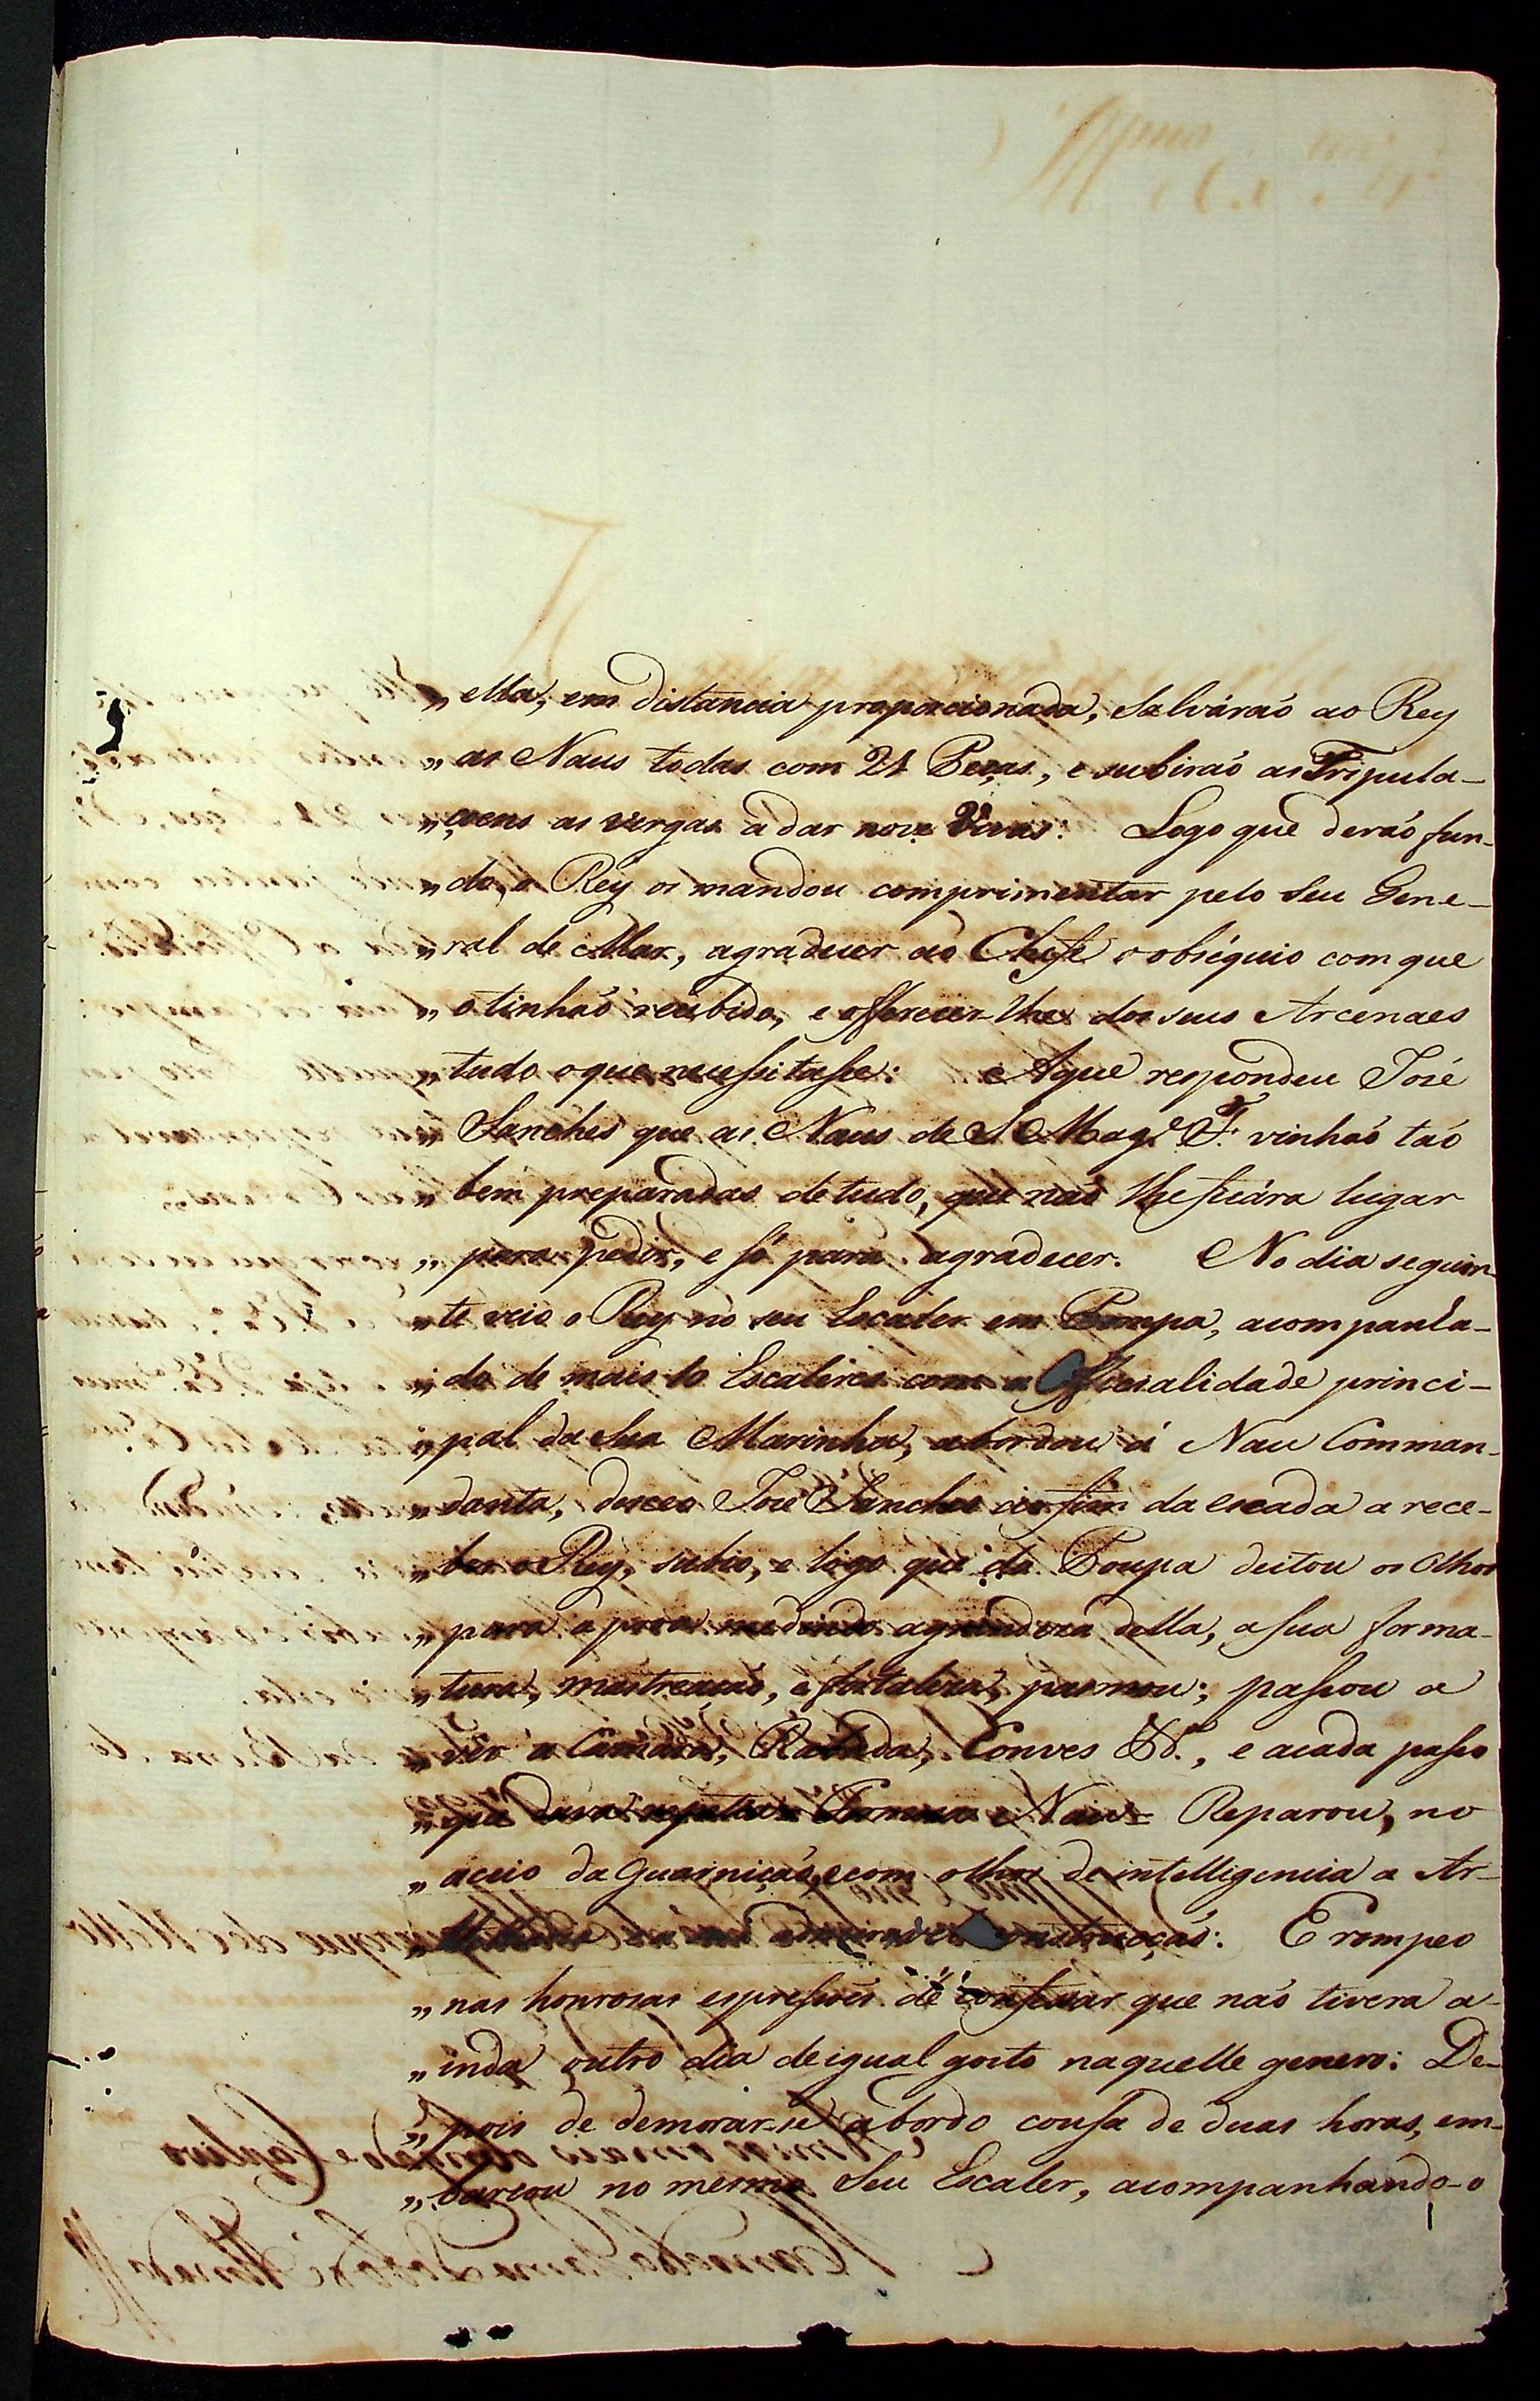 „ ella, em distancia proporcionada, Salváraõ ao Rey
„ as Naus todas com 21 Peças, e subiraõ as Tripula-
„ çoens as vergas a dar nove Vivas: Logo que deraõ fun-
„ do, o Rey os mandou comprimentar pelo seu Gene-
„ ral de Mar, agradecer ao Chefe o obséquio com que
„ o tinhaõ recebido, e offerecer-lhe dos seus Arcenaes
„ tudo o que necessitasse: A que respondeu José
„ Sanches que as Naus de S. Mag.e F. vinhaõ taõ
„ bem preparadas de tudo, que naõ lhe ficára lugar
„ para pedir, e só para agradecer. No dia seguin-
„ te veio o Rey no seu Escaler em Pompa, acompanha-
„ do de mais 10 Escaleres com a Officialidade princi-
„ pal da Sua Marinha, abordou á Nau Comman-
„ danta, desceo José Sanches ao fim da escada a rece-
„ ber o Rey, subio, e logo que da Poupa deitou os olhos
„ para a proa medindo a grandeza della, a sua forma-
„ tura, mastreaçaõ, e fortaleza, pasmou; passou a
„ ver a Camara, Rabada, Conves &.ª, e a cada passo
„ que dava repetia = Formoza Nau = Reparou, no
„ aceio da Guarniçaõ, e com olhos de intelligencia a Ar-
„ construcçaõ: E rompeo
„ nas honrosas expressoẽs de confessar que naõ tivera a-
„ inda outro dia de igual gosto naquelle genero: De-
„ pois de demorar-se a bordo cousa de duas horas, em-
„ barcou no mesmo Seu Escaler, acompanhando-o